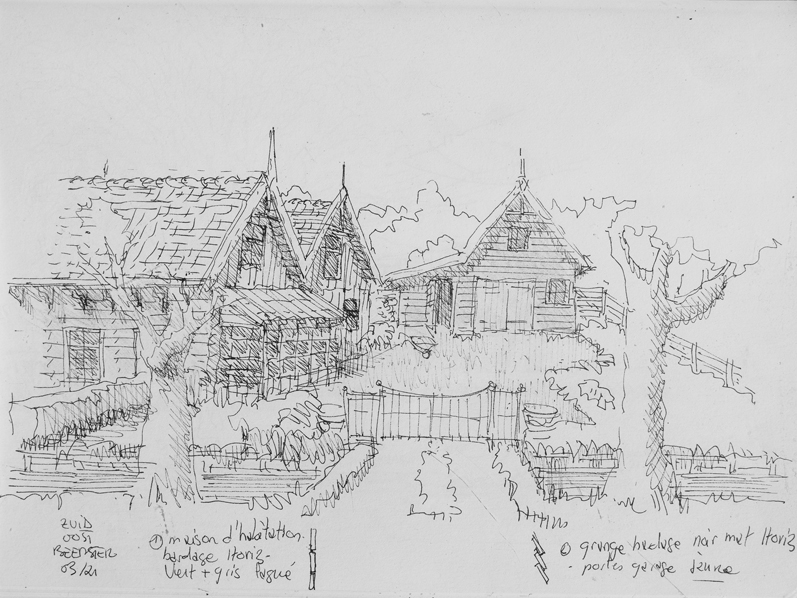 ZUID
OOST
BEEMSTER
03/21
① maison d'habitation.
bardage Horiz-
Vert + gris
② grange bardage noir mat Horiz
- portes garage